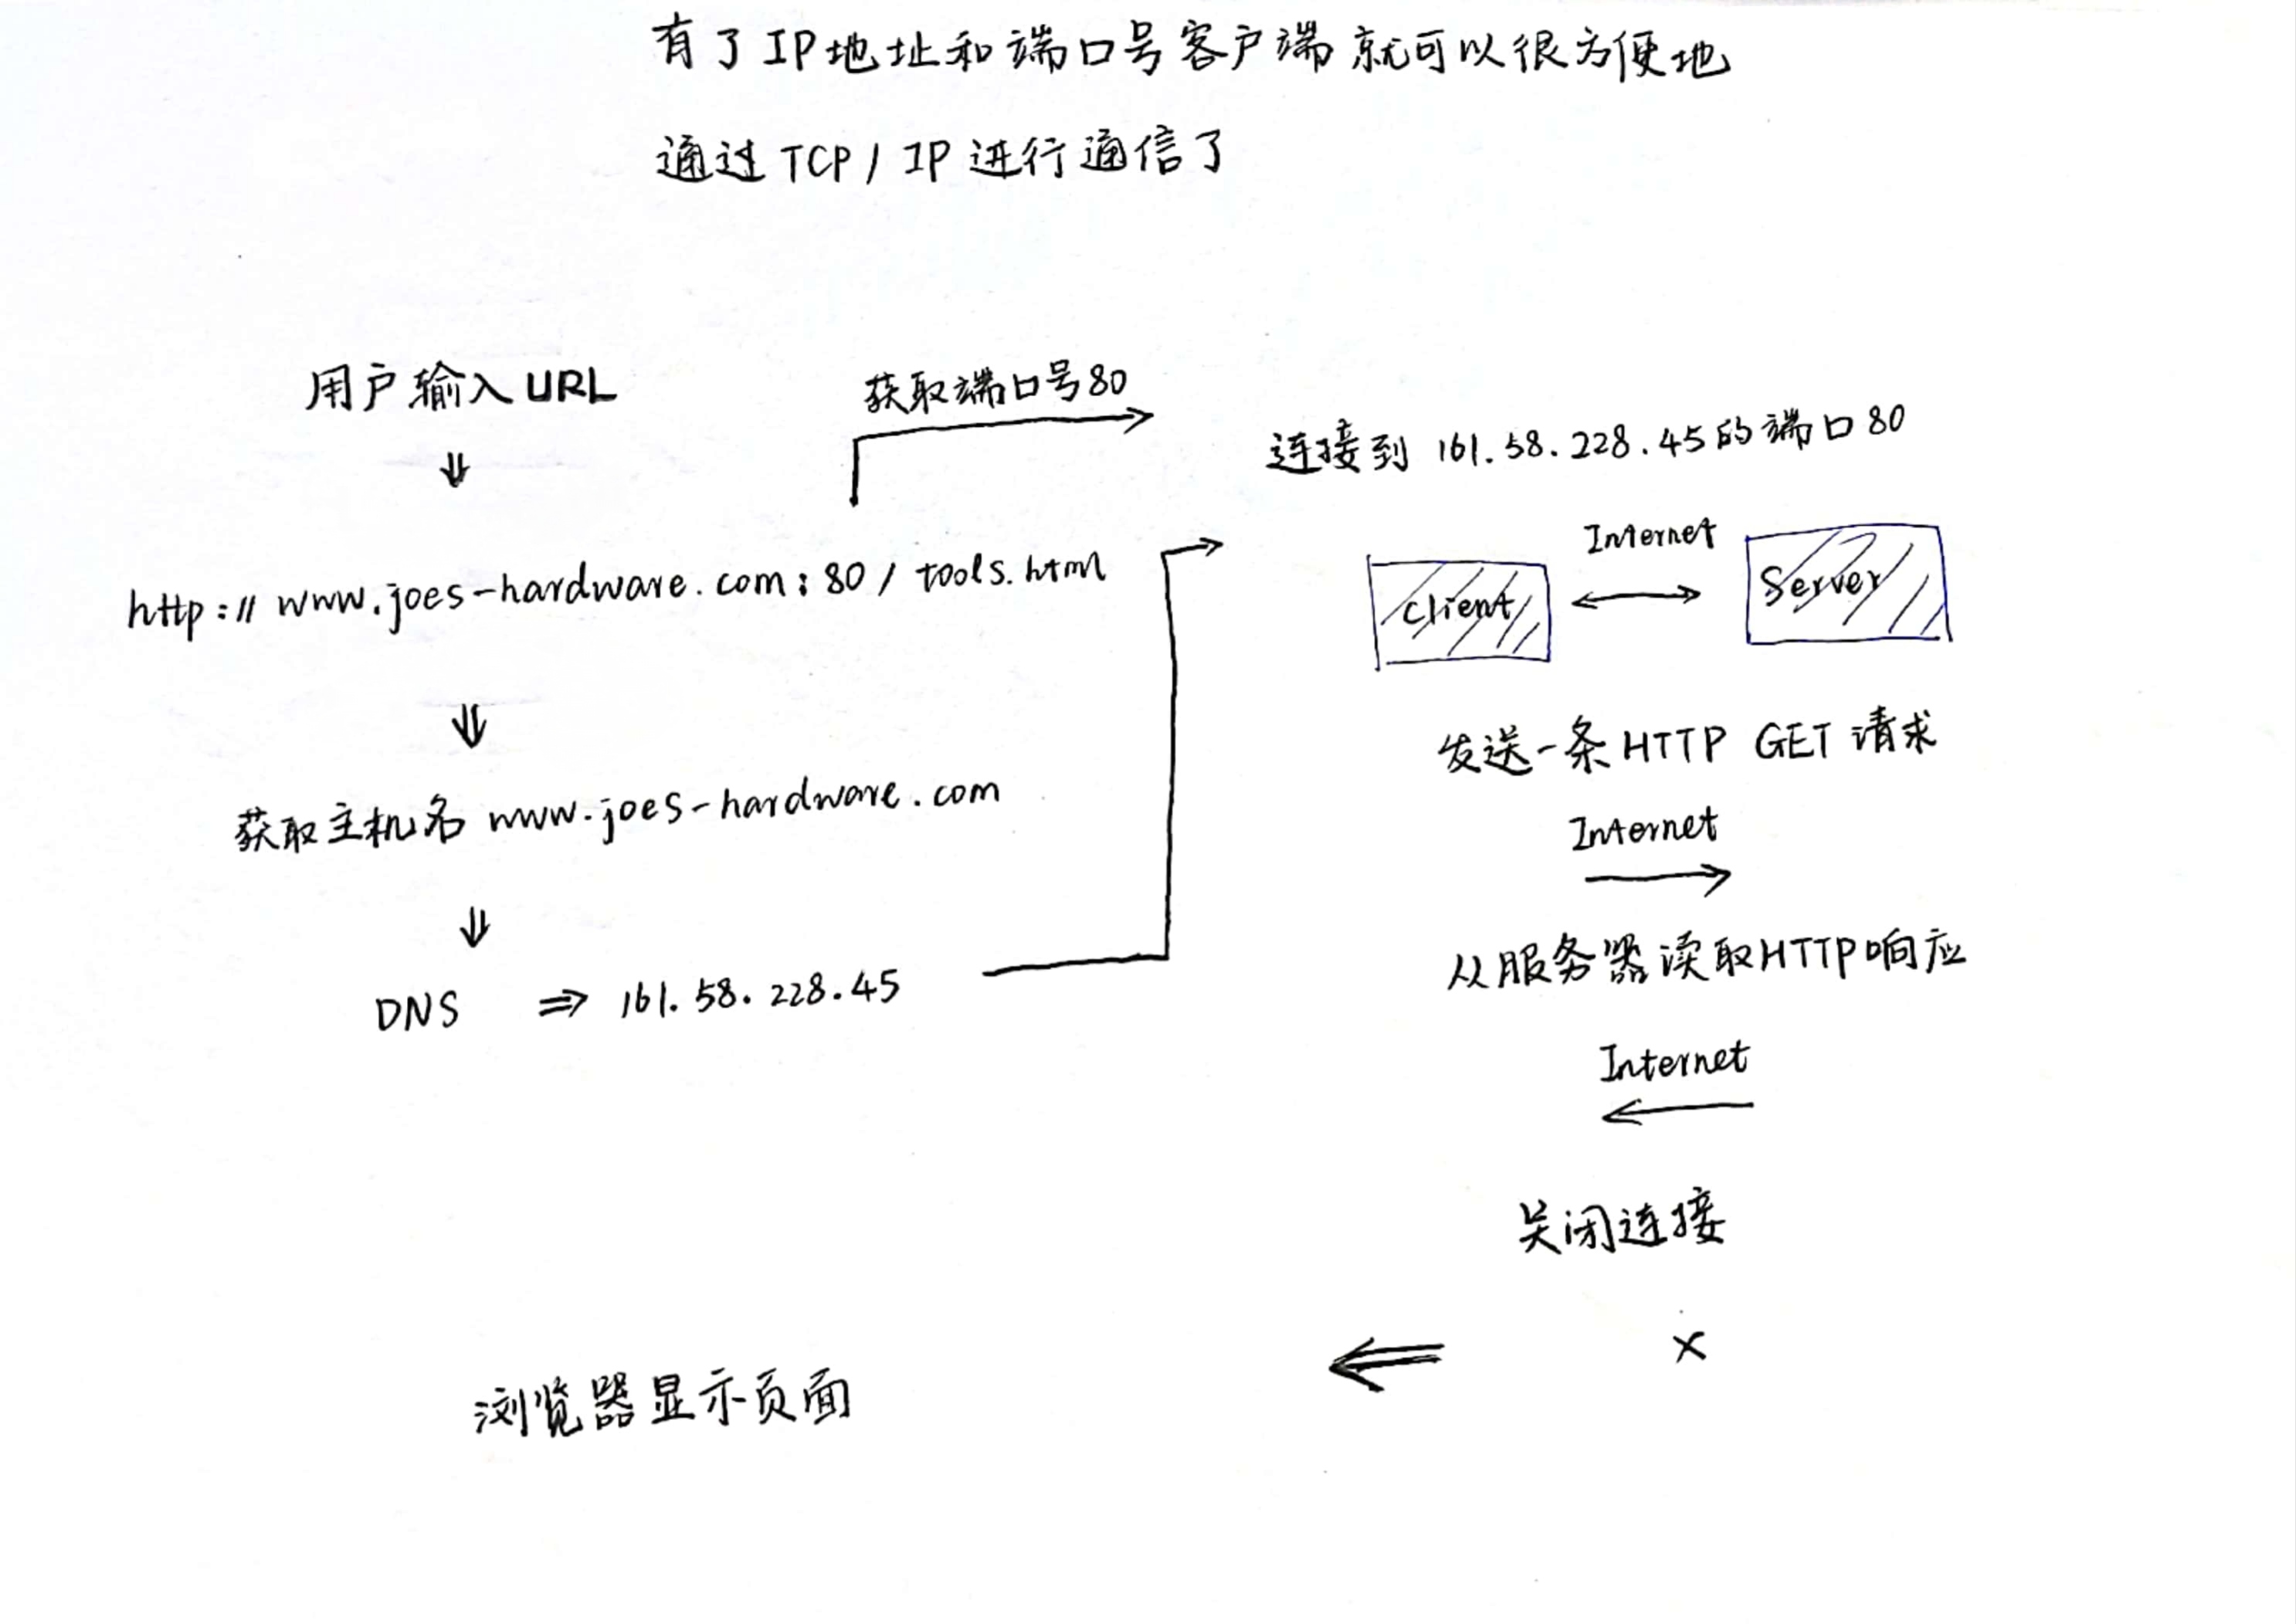 有了IP地址和端口号客户端就可以很方便地
通过TCP/IP进行通信了
用户输入URL
获取端口号80
http://www.joes-hardware.com:80/tools.html
获取主机名 www.joes-hardware.com
DNS ⇒ 161.58.228.45
连接到 161.58.228.45的端口80
Internet
Client
Server
发送一条HTTP GET请求
Internet
从服务器读取HTTP响应
Internet
关闭连接
×
浏览器显示页面